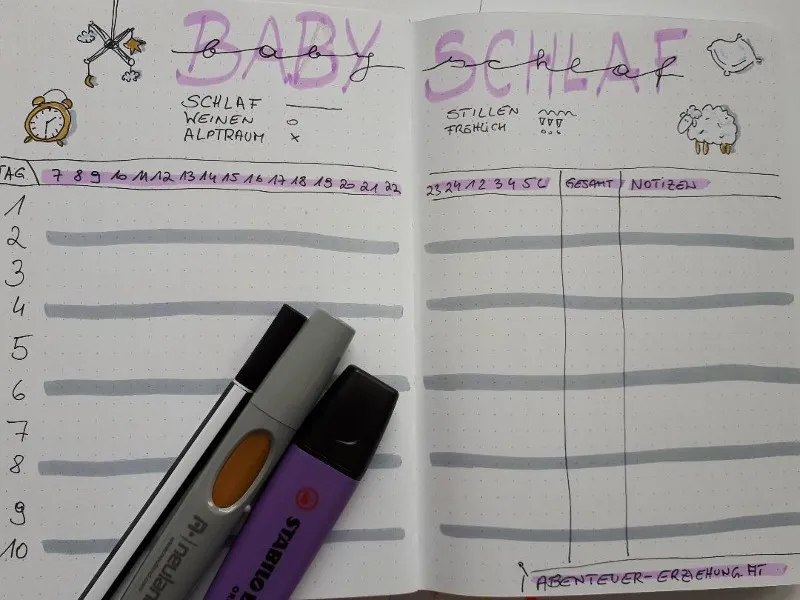 BABY SCHLAF
baby schlaf
SCHLAF
WEINEN o
ALPTRAUM x
STILLEN
FRÖHLICH
TAG 7 8 9 10 11 12 13 14 15 16 17 18 19 20 21 22 23 24 1 2 3 4 5 6 GESAMT NOTIZEN
1
2
3
4
5
6
7
8
9
10
STABILO
ABENTEUER-ERZIEHUNG.AT